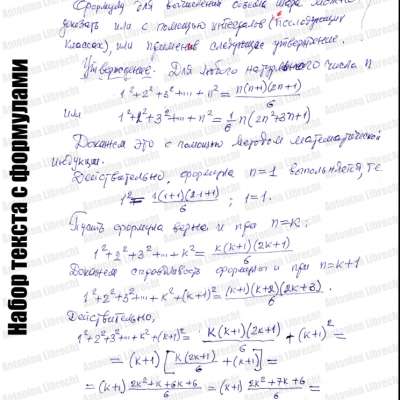 Набор текста с формулами
Формулу для вычисления объема шара можно
доказать или с помощью интегралов (в последующих
классах), или применив следующее утверждение.
Утверждение. Для любого натурального числа n
1²+2²+3²+...+n² = n(n+1)(2n+1)/6
или
1²+2²+3²+...+n² = 1/6 n(2n²+3n+1)
Докажем это с помощью методом математической
индукции.
Действительно, формула n=1 выполняется, те
1² = 1(1+1)(2·1+1)/6 ; 1=1.
Пусть формула верна и при n=k.
1²+2²+3²+...+k² = k(k+1)(2k+1)/6
Докажем справедливость формулы и при n=k+1
1²+2²+3²+...+k²+(k+1)² = (k+1)(k+2)(2k+3)/6 .
Действительно,
1²+2²+3²+...+k²+(k+1)² = k(k+1)(2k+1)/6 + (k+1)² =
= (k+1) [k(2k+1)/6 + (k+1)] =
= (k+1) 2k²+k+6k+6/6 = (k+1) 2k²+7k+6/6 =
Antonina Librecht